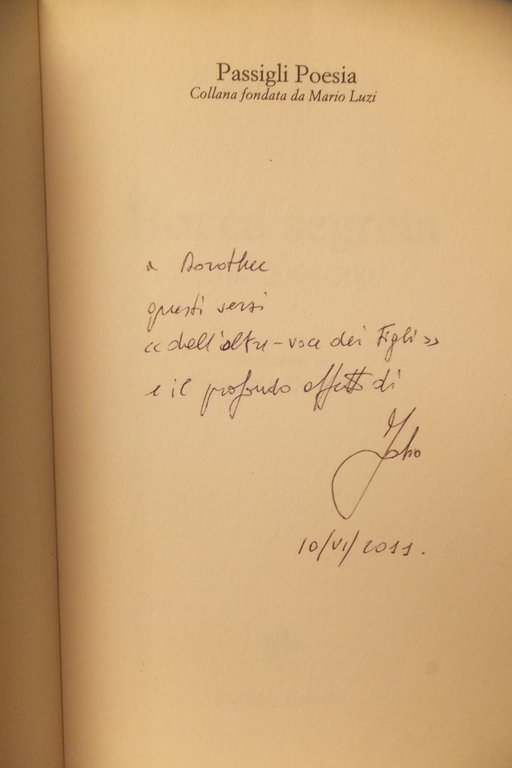 Passigli Poesia
Collana fondata da Mario Luzi
a Dorothee
questi versi
«dell'oltre-voce dei Figli»
e il profondo affetto di
10/VI/2011.